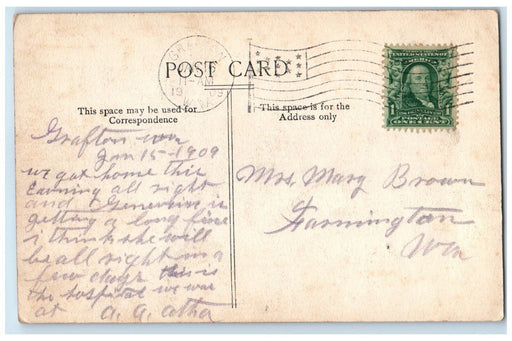 POST CARD
This space may be used for
Correspondence
This space is for the
Address only
UNITED STATES OF
AMERICA
POSTAGE
ONE CENT
Grafton wva
Jan 15-1909
we got home this
Evening all right
and Genevieve is
getting a long fine
i think she will
be all right in a
few days this is
the hospital we was
at A. G. Atha
Mrs. Mary Brown
Farmington
Wva